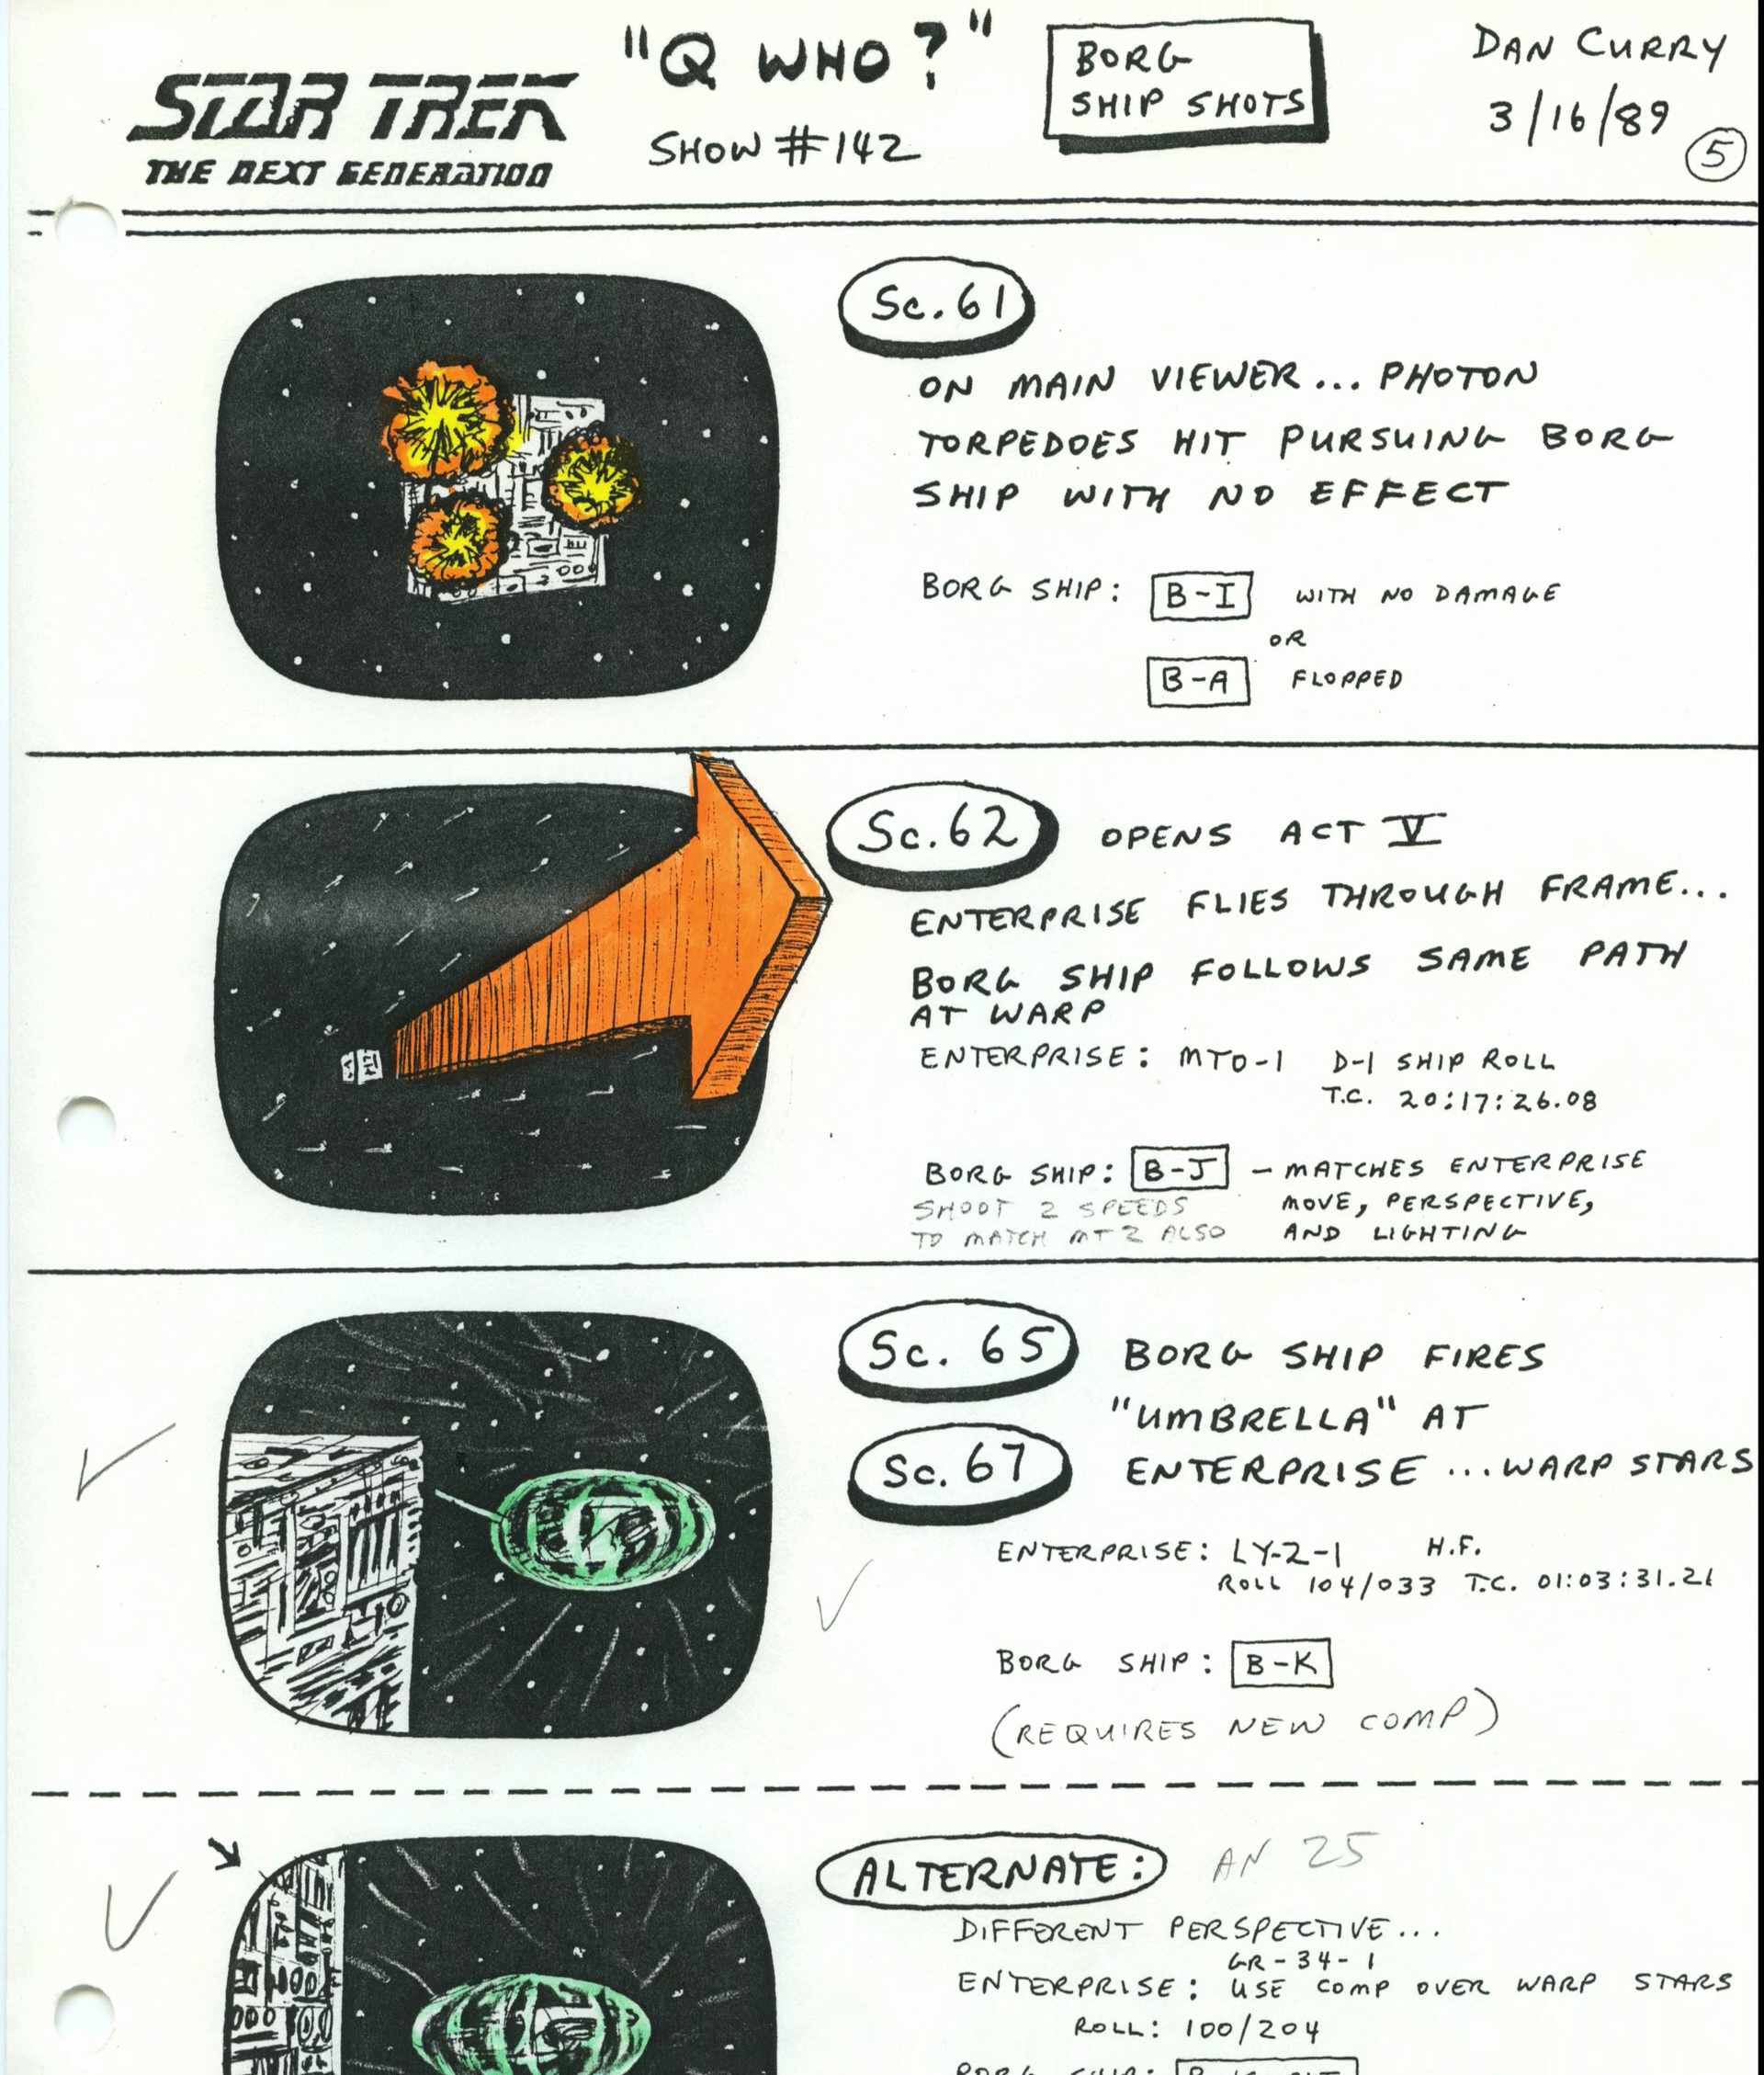 "Q WHO?"
SHOW #142
BORG
SHIP SHOTS
DAN CURRY
3/16/89
5
STAR TREK
THE NEXT GENERATION
Sc. 61
ON MAIN VIEWER... PHOTON
TORPEDOES HIT PURSUING BORG
SHIP WITH NO EFFECT
BORG SHIP: B-I WITH NO DAMAGE
OR
B-A FLOPPED
Sc. 62 OPENS ACT V
ENTERPRISE FLIES THROUGH FRAME...
BORG SHIP FOLLOWS SAME PATH
AT WARP
ENTERPRISE: MTO-1 D-1 SHIP ROLL
T.C. 20:17:26.08
BORG SHIP: B-J – MATCHES ENTERPRISE
MOVE, PERSPECTIVE,
AND LIGHTING
SHOOT 2 SPEEDS
TO MATCH MT2 ALSO
Sc. 65
Sc. 67
BORG SHIP FIRES
"UMBRELLA" AT
ENTERPRISE ...WARP STARS
ENTERPRISE: LY-2-1 H.F.
ROLL 104/033 T.C. 01:03:31.21
BORG SHIP: B-K
(REQUIRES NEW COMP)
ALTERNATE: AN 25
DIFFERENT PERSPECTIVE...
GR-34-1
ENTERPRISE: USE COMP OVER WARP STARS
ROLL: 100/204
BORG SHIP: